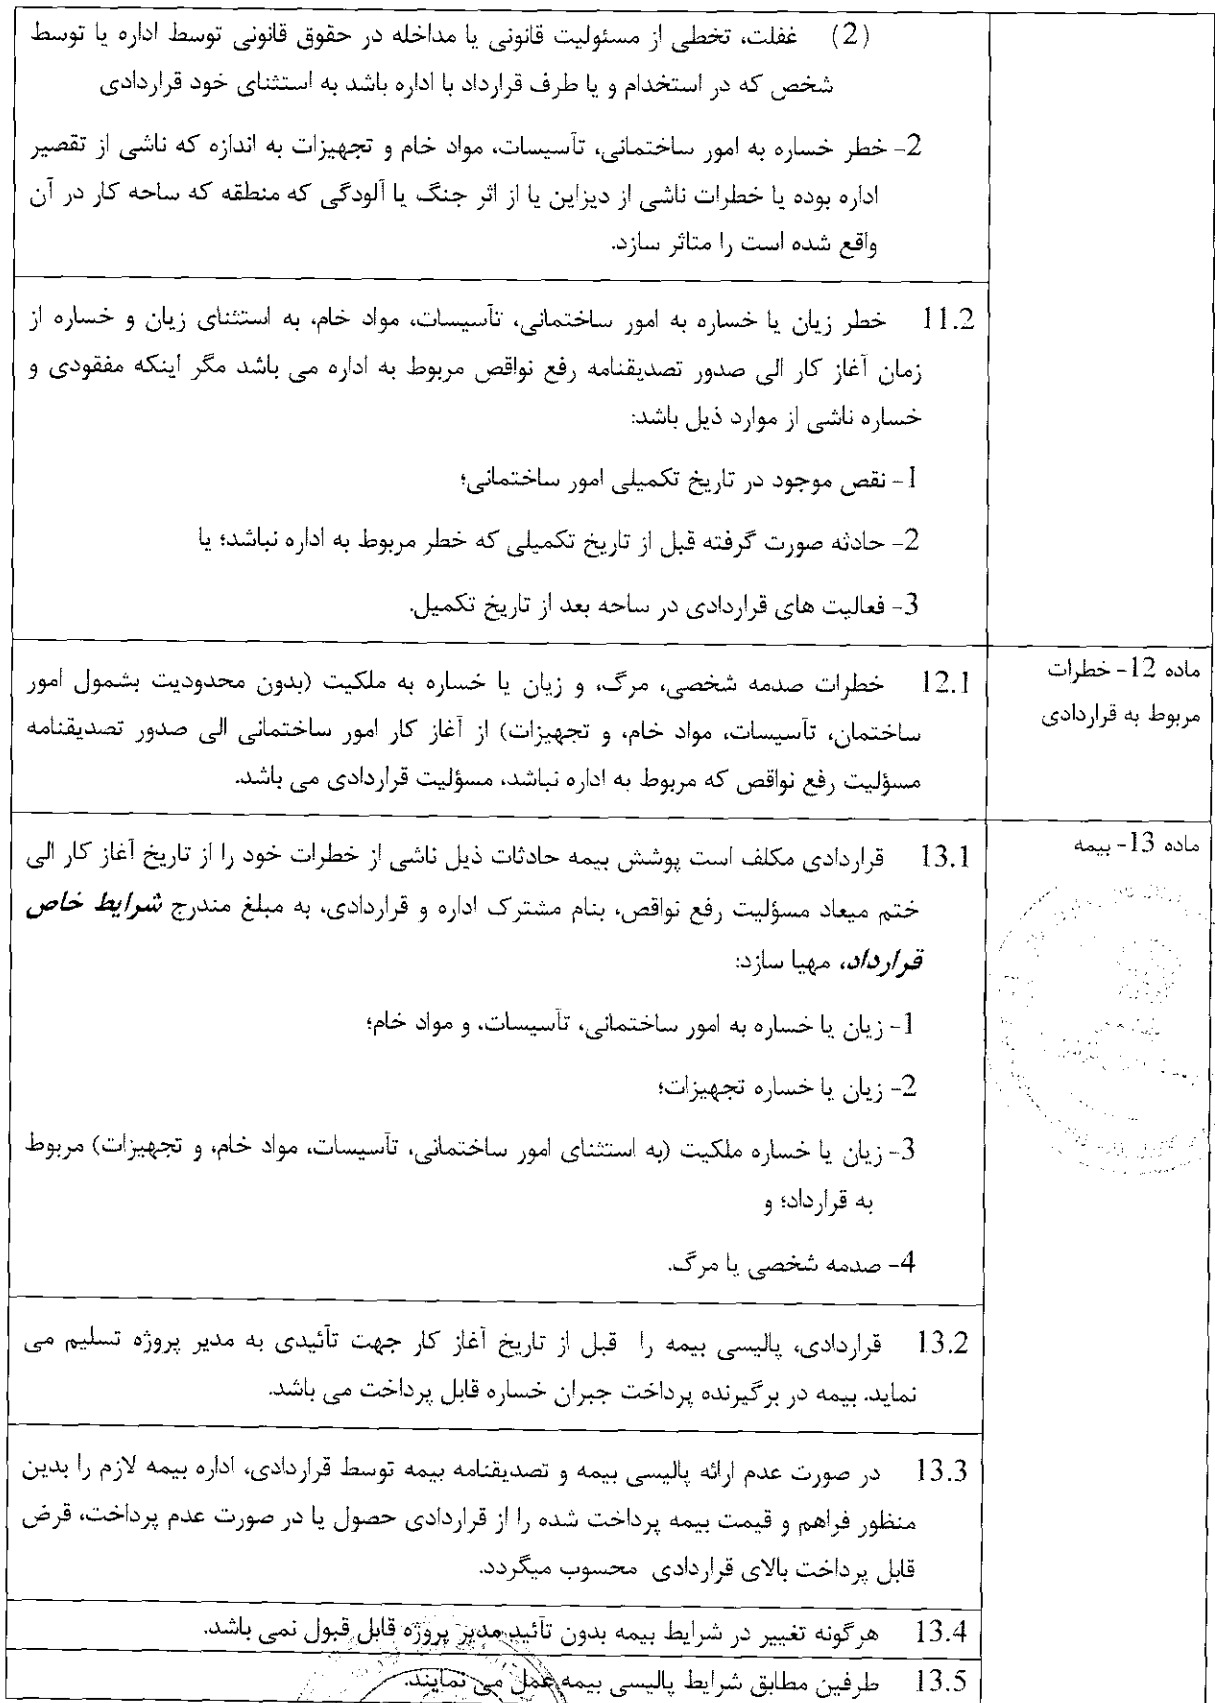 (2) غفلت، تخطی از مسئولیت قانونی یا مداخله در حقوق قانونی توسط اداره یا توسط
شخص که در استخدام و یا طرف قرارداد با اداره باشد به استثنای خود قراردادی
2- خطر خساره به امور ساختمانی، تآسیسات، مواد خام و تجهیزات به اندازه که ناشی از تقصیر
اداره بوده یا خطرات ناشی از دیزاین یا از اثر جنگ یا آلودگی که منطقه که ساحه کار در آن
واقع شده است را متاثر سازد.
11.2 خطر زیان یا خساره به امور ساختمانی، تآسیسات، مواد خام، به استثنای زیان و خساره از
زمان آغاز کار الی صدور تصدیقنامه رفع نواقص مربوط به اداره می باشد مگر اینکه مفقودی و
خساره ناشی از موارد ذیل باشد:
1- نقص موجود در تاریخ تکمیلی امور ساختمانی؛
2- حادثه صورت گرفته قبل از تاریخ تکمیلی که خطر مربوط به اداره نباشد؛ یا
3- فعالیت های قراردادی در ساحه بعد از تاریخ تکمیل.
ماده 12- خطرات
مربوط به قراردادی
12.1 خطرات صدمه شخصی، مرگ، و زیان یا خساره به ملکیت (بدون محدودیت بشمول امور
ساختمان، تآسیسات، مواد خام، و تجهیزات) از آغاز کار امور ساختمانی الی صدور تصدیقنامه
مسؤلیت رفع نواقص که مربوط به اداره نباشد، مسؤلیت قراردادی می باشد.
ماده 13- بیمه
13.1 قراردادی مکلف است پوشش بیمه حادثات ذیل ناشی از خطرات خود را از تاریخ آغاز کار الی
ختم میعاد مسؤلیت رفع نواقص، بنام مشترک اداره و قراردادی، به مبلغ مندرج شرایط خاص
قرارداد، مهیا سازد:
1- زیان یا خساره به امور ساختمانی، تآسیسات، و مواد خام؛
2- زیان یا خساره تجهیزات؛
3- زیان یا خساره ملکیت (به استثنای امور ساختمانی، تآسیسات، مواد خام، و تجهیزات) مربوط
به قرارداد؛ و
4- صدمه شخصی یا مرگ.
13.2 قراردادی، پالیسی بیمه را قبل از تاریخ آغاز کار جهت تآئیدی به مدیر پروژه تسلیم می
نماید. بیمه در برگیرنده پرداخت جبران خساره قابل پرداخت می باشد.
13.3 در صورت عدم ارائه پالیسی بیمه و تصدیقنامه بیمه توسط قراردادی، اداره بیمه لازم را بدین
منظور فراهم و قیمت بیمه پرداخت شده را از قراردادی حصول یا در صورت عدم پرداخت، قرض
قابل پرداخت بالای قراردادی محسوب میگردد.
13.4 هرگونه تغییر در شرایط بیمه بدون تآئید مدیر پروژه قابل قبول نمی باشد.
13.5 طرفین مطابق شرایط پالیسی بیمه عمل می نمایند.